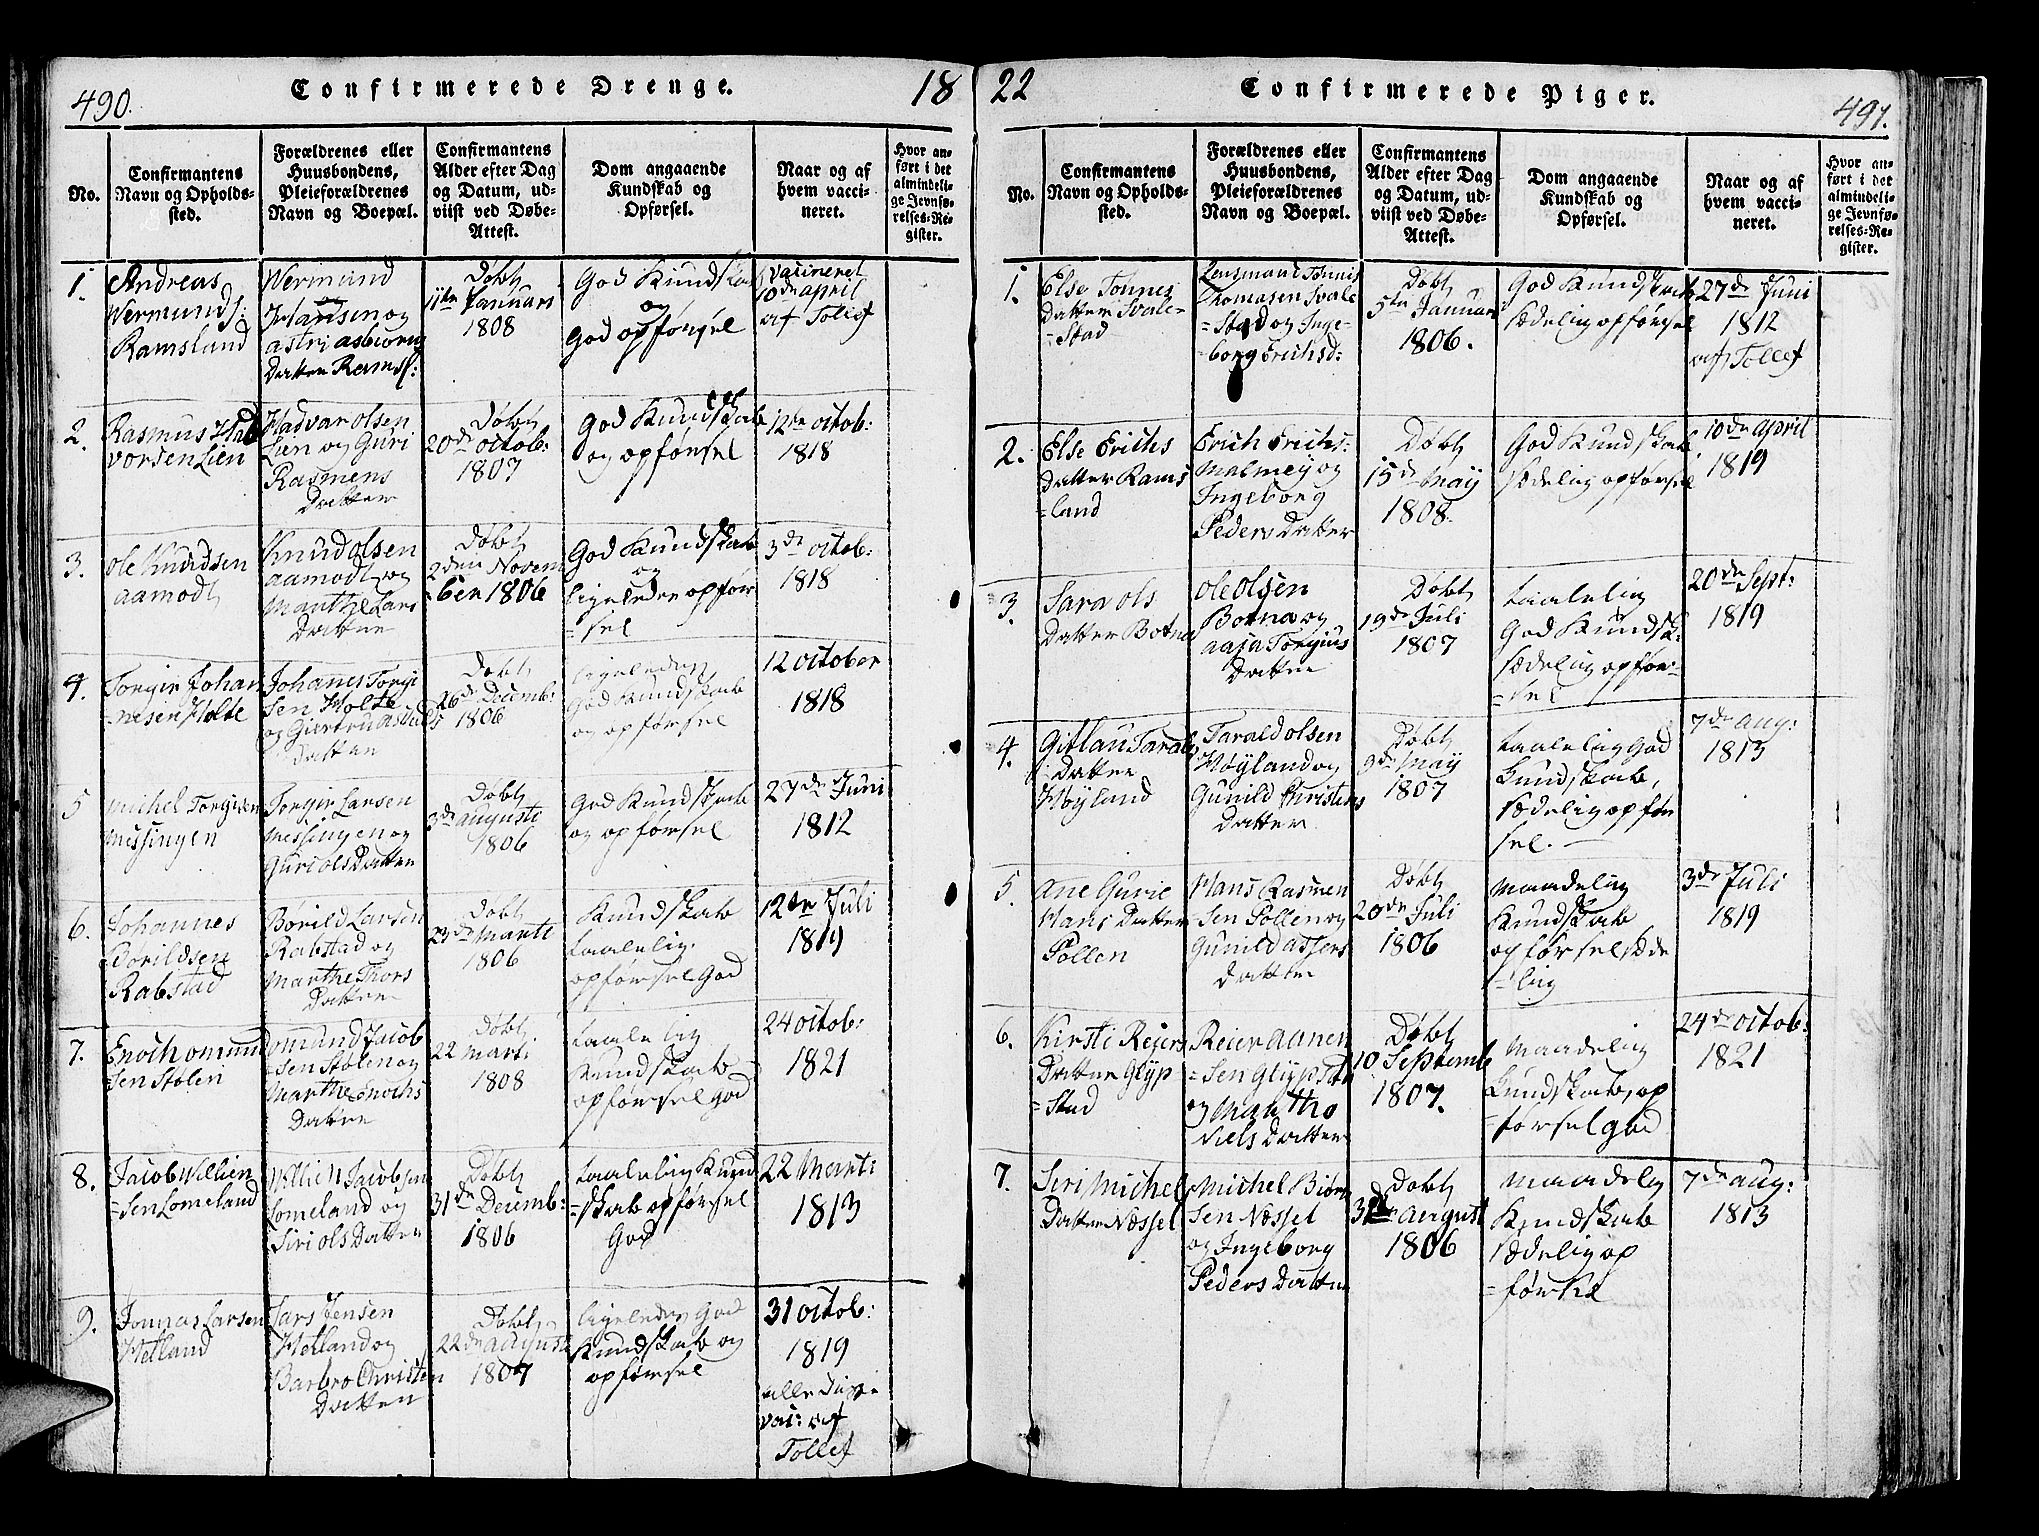 490.
Confirmerede Drenge.
18
No.
Confirmantens
Navn og Opholds-
sted.
Forældrenes eller
Huusbondens,
Pleieforældrenes
Navn og Boepæl.
Confirmantens
Alder efter Dag
og Datum, ud-
viist ved Døbe-
Attest.
Dom angaaende
Kundskab og
Opførsel.
Naar og af
hvem vacci-
neret.
Hvor an-
ført i det
almindeli-
ge Jevnfø-
relses-Re-
gister.
1.
Andreas
Wermunds:
Ramsland
Wermund
Hansen og
Astri Asbiorns
Datter Ramsl:
Døbt
11te Januari
1808
God Kundskab
og
God opførsel
vacineret
10de april
af Tollef
2.
Rasmus Had
vorsen Lien
Hadvar olsen
Lien og Guri
Rasmens
Datter
Døbt
20de octob:
1807
God Kundskab
og opførsel
12te octob:
1818
3.
Ole Knudsen
aamodt
Knud olsen
aamodt og
Marthe Lars
Datter
Døbt
2den Novem
=ber 1806
God Kundskab
og
ligeledes opfør
=sel
3de octob:
1818
4.
Torgir Johan
=nesen Holte
Johanes Torgi
sen Holte
og Giertru Aslaks
Datter
Døbt
26de Decemb:
1806
ligeledes
God Kundskab
og opførsel
12 october
1818
5
Michel Torgisen
Messingen
Torgir Larsen
Messingen og
Guri ols Datter
Døbt
3de augusti
1806
God Kundskab
og opførsel
27de Juni
1812
6.
Johannes
Børildsen
Rabstad
Børild Larsen
Rabstad og
Marthe Thors
Datter
Døbt
23de Marti
1806
Kundskab
taalelig
opførsel God
12te Juli
1819
7.
Enoch omund
=sen Stølen
omund Jacob
=sen Stølen og
Marthe Enochs
Datter
Døbt
22 Marti
1808
taalelig
Kundskab
opførsel god
24 octob:
1821
8.
Jacob Willien
=sen Lomeland
Willie Jacobsen
Lomeland og
Siri ols Datter
Døbt
31de Decemb:
1806
taalelig Kund
=skab opførsel
God
22 Marti
1813
9.
Jonnas Larsen
Hetland
Lars Jensen
Hetland og
Barbro Christen
Datter
Døbt
22de august
1807
ligeledes God
Kundskab og
opførsel
31 octob:
1819
alle disse
vac: af
Tollef
22
Confirmerede Piger.
491.
No.
Confirmantens
Navn og Opholds-
sted.
Forældrenes eller
Huusbondens,
Pleieforældrenes
Navn og Boepæl.
Confirmantens
Alder efter Dag
og Datum, ud-
viist ved Døbe-
Attest.
Dom angaaende
Kundskab og
Opførsel.
Naar og af
hvem vacci-
neret.
Hvor an-
ført i det
almindeli-
ge Jevnfø-
relses-Re-
gister.
1.
Else Tonnes
Datter Svale-
=stad
Lensmand Tønnes
Thomasen Svale
=stad og Inge-
=borg Erichsd:
Døbt
5te Januar
1806.
God Kundskab
sædelig opførsel
27de Juni
1812
af Tollef
2.
Else Erichs
Datter Rams
=land
Erich Erichs:
Malmey og
Ingeborg
Peders Datter
Døbt
15de May
1808.
God Kundskab
sædelig opførsel
10de april
1819
3.
Sara ols
Datter Botne
Ole olsen
Botne og
aasa Torgius
Datter
Døbt
19de Juli
1807
taalelig
God Kundsk:
sædelig opfør-
=sel
20de Sept:
1819
4.
Gitlau Taralds
Datter
Høyland
Tarald olsen
Høyland og
Gunild Christens
Datter
Døbt
9de May
1807
taalelig God
Kundskab,
sædelig opfør
sel.
7de aug:
1813
5.
Ane Gurie
Hans Datter
Pollen
Hans Rasmen
=sen Pollen og
Gunild Assers
Datter
Døbt
20de Juli
1806
maadelig
Kundskab
opførsel sæde
=lig
3de Juli
1819
6.
Kirsti Reiers
Datter Glyp
=stad
Reier Aanen
=sen Glypstad
og Marthe
Niels Datter
Døbt
10 Septemb
1807.
maadelig
Kundskab, op
=førsel god
24de octob:
1821
7.
Siri Michels
Datter Næssel
Michel Biørn
sen Næssel
og Ingeborg
Peders Datter
Døbt
31de august
1806
maadelig
Kundskab
sædelig op
=førsel
7de aug:
1813